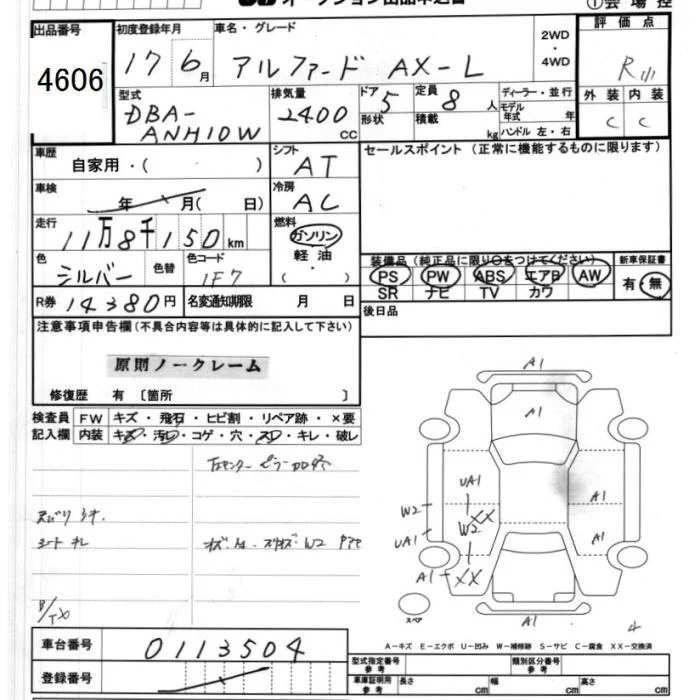 出品番号 初度登録年月 車名・グレード 2WD・4WD 評価点
4606 17 6月 アルファード AX-L R
型式 排気量 ドア 5 定員 8人 ディーラー・並行 外装 内装
DBA-ANH10W 2400cc 形状 積載 kg モデル年式 年 C C
ハンドル 左・右
車歴 自家用・( ) シフト AT セールスポイント (正常に機能するものに限ります)
車検 年 月( 日) 冷房 AC
走行 11万8千150km 燃料 ガソリン
軽油
( )
色 シルバー 色替 色コード 1F7 装備品 新車保証書
PS PW ABS エアB AW 有・無
SR ナビ TV カワ
R券 14380円 名変通知期限 月 日 後日品
注意事項申告欄(不具合内容等は具体的に記入して下さい)
原則ノークレーム
修復歴 有〔箇所 〕
検査員 FW キズ・飛石・ヒビ割・リペア跡・×要
記入欄 内装 キズ・汚レ・コゲ・穴・スレ・キレ・破レ
シート キレ
A1
A1
UA1 A1
W2 XX
W2
UA1 A1
A1 XX
スペア A1 4
車台番号 0113504
A－キズ E－エクボ U－凹み W－補修跡 S－サビ C－腐食 XX－交換済
登録番号 型式指定番号 参考 類別区分番号 参考
車庫証明用 参考 長さ cm 幅 cm 高さ cm